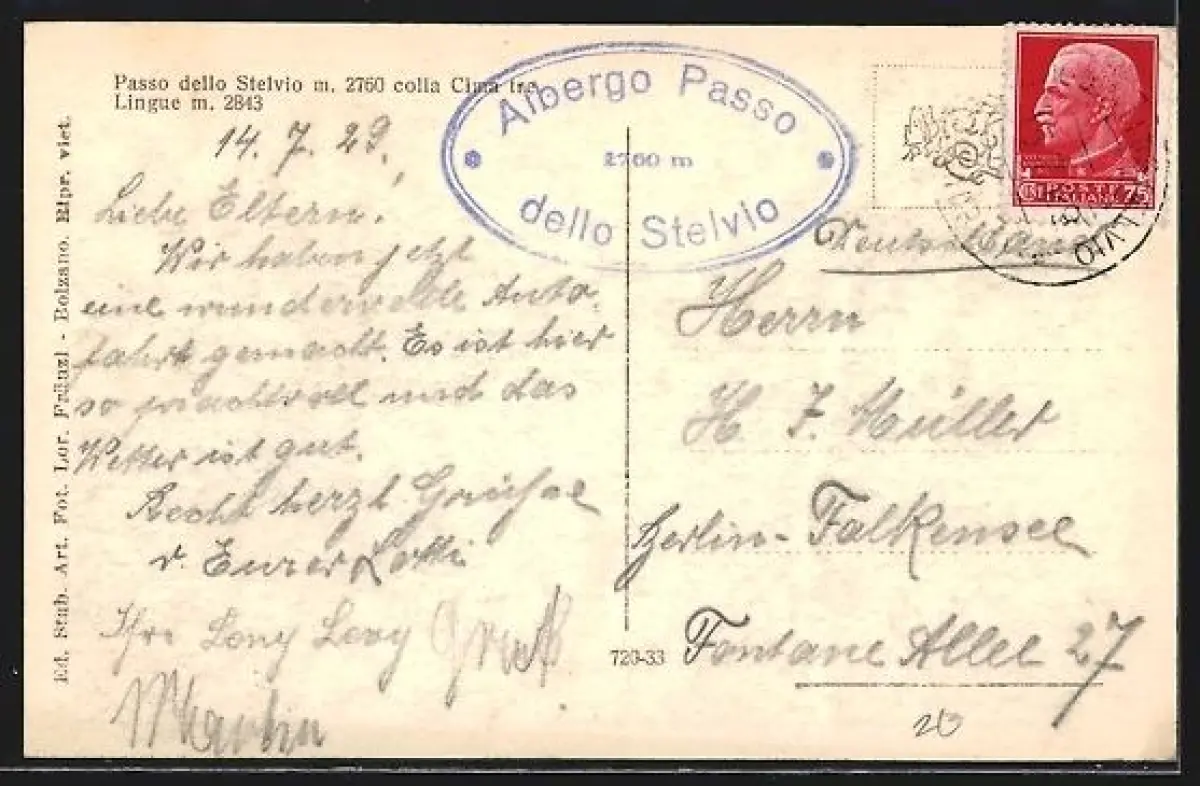 Passo dello Stelvio m. 2760 colla Cima tre
Lingue m. 2843
Albergo Passo
2760 m
dello Stelvio
POSTE ITALIANE
75
14. 7. 29.
Liebe Eltern!
Wir haben jetzt
eine wundervolle Auto-
fahrt gemacht. Es ist hier
so prachtvoll und das
Wetter ist gut.
Recht herzl. Grüsse
v. Eurer Lotti
Ihre Leny Levy Gruß
Martin
Deutschland
Herrn
H. F. Müller
Berlin-Falkensee
Fontane Allee 27
20
720-33
Ed. Stab. Art. Fot. Lor. Fränzl - Bolzano. Ripr. viet.